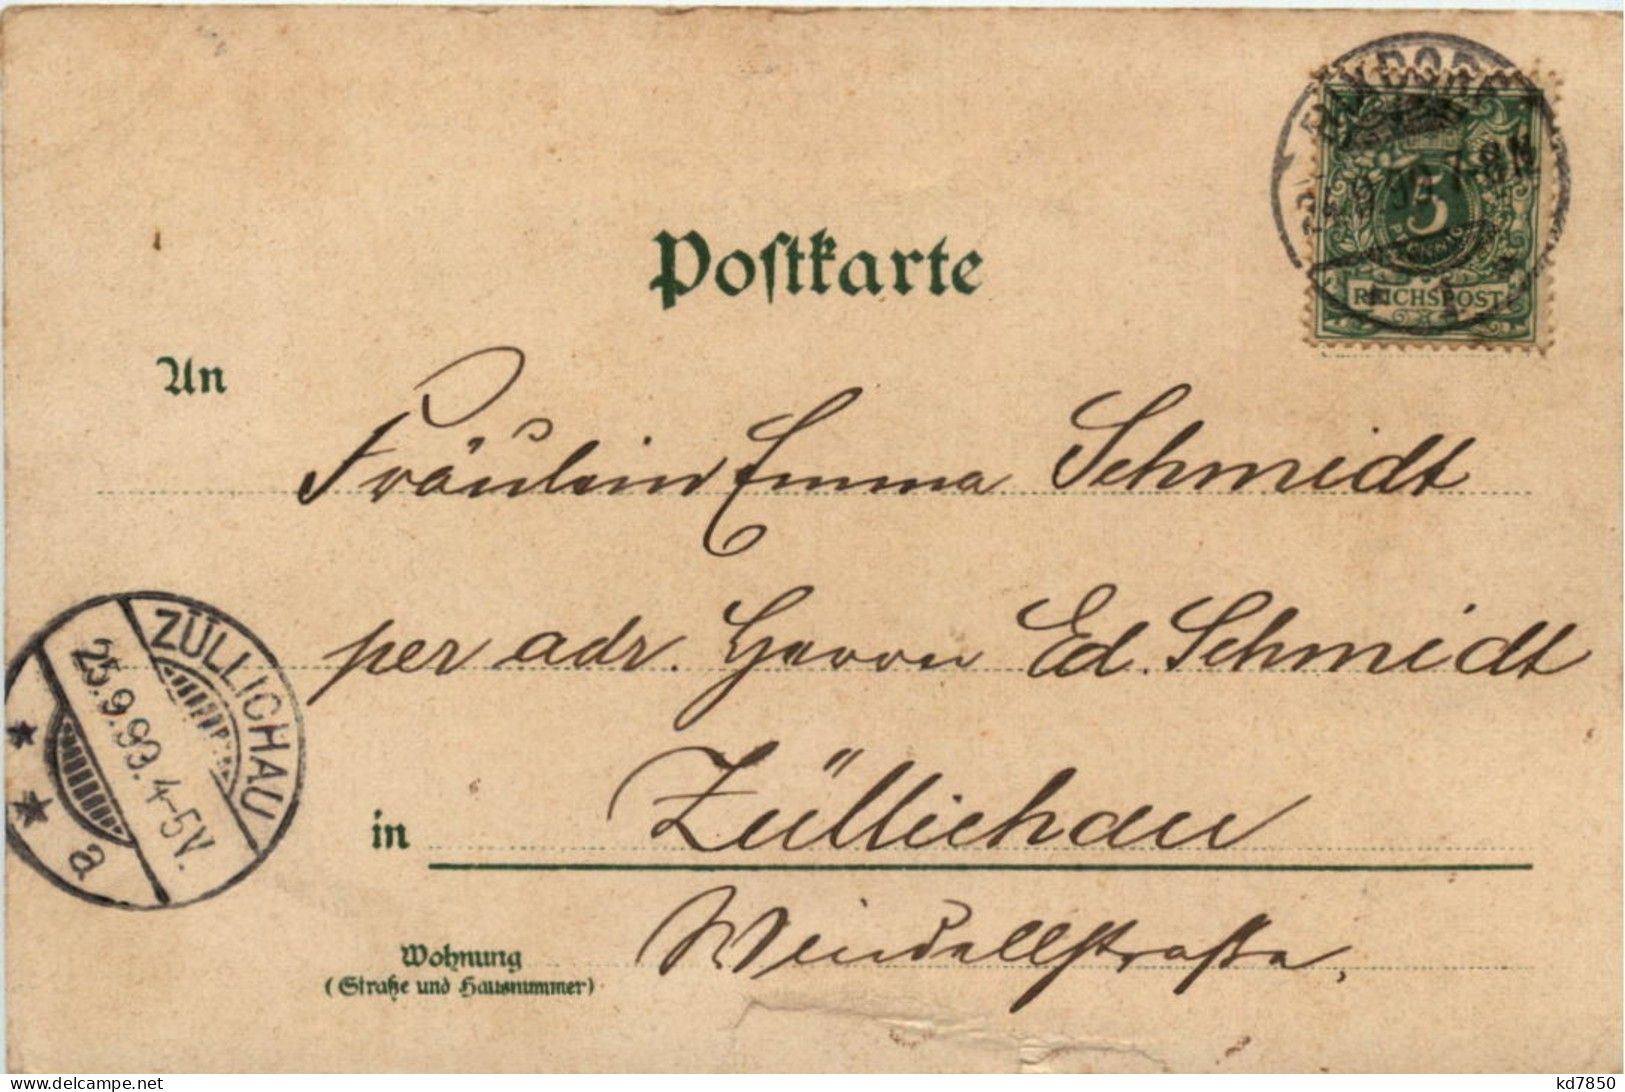 Postkarte
5
REICHSPOST
An
Fräulein Emma Schmidt
per adr. Herrn Ed. Schmidt
ZÜLLICHAU
25.9.93. 4-5V.
a
in Züllichau
Wohnung
(Straße und Hausnummer)
kd7850